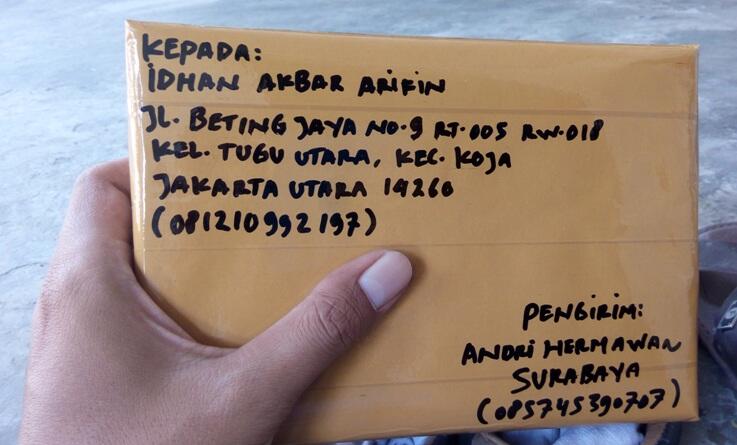 KEPADA:
IDHAN AKBAR ARIFIN
JL. BETING JAYA NO.9 RT.005 RW.018
KEL. TUGU UTARA, KEC. KOJA
JAKARTA UTARA 14260
(081210992197)
PENGIRIM:
ANDRI HERMAWAN
SURABAYA
(085745390707)